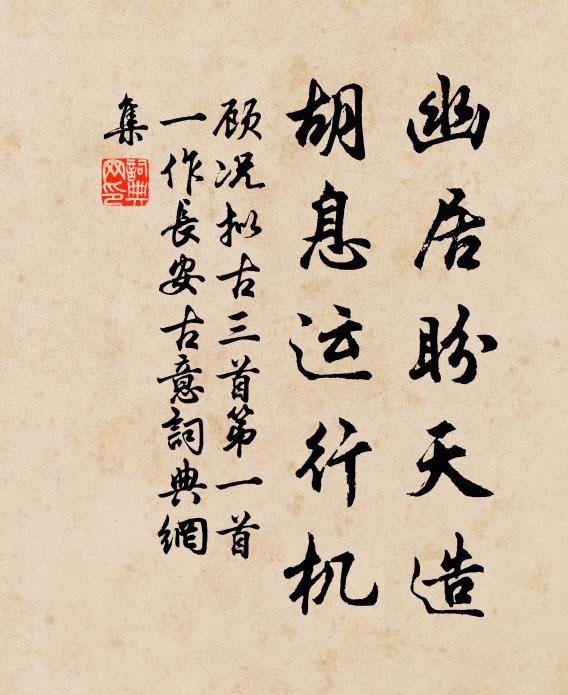 幽居盼天造
胡息运行机
顾况拟古三首第一首
一作長安古意詞典網
集
詞典
网印